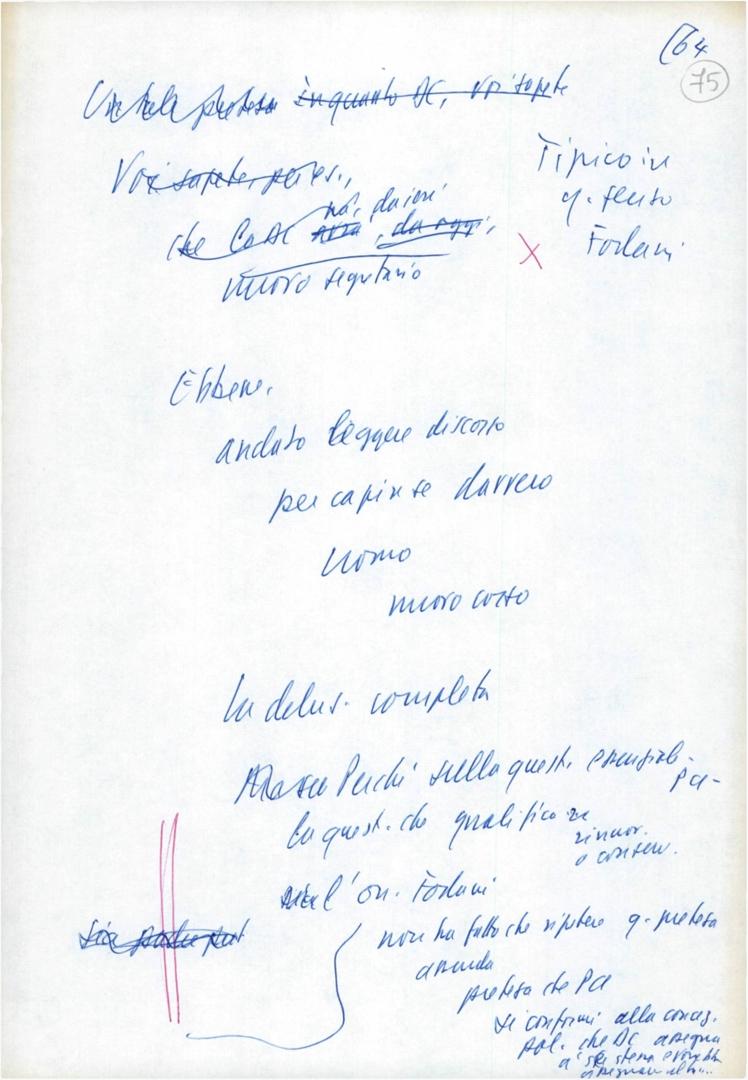 64
75
Una tale pretesa in quanto DC, voi sapete
Voi sapete, per es.,
Tipico in
q. senso
Forlani
ha, da ieri
che la DC avrà, da oggi,
nuovo segretario
X
Ebbene,
andato leggere discorso
per capire se davvero
uomo
nuovo corso
La delus. completa
Perché sulla quest. essenziale
PCI
la quest. che qualifica
rinnov.
o conserv.
l'on. Forlani
non ha fatto che ripetere q. pretesa
assurda
pretesa che PCI
si conformi alla concez.
pol. che DC assegna
a se stessa e vorrebbe